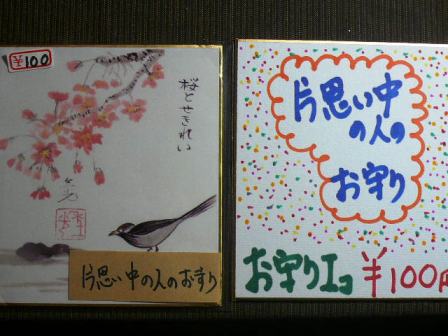 ¥100
桜とせきれい
片思い中の人のお守り
片思い中
の人の
お守り
お守りエコ ¥100円